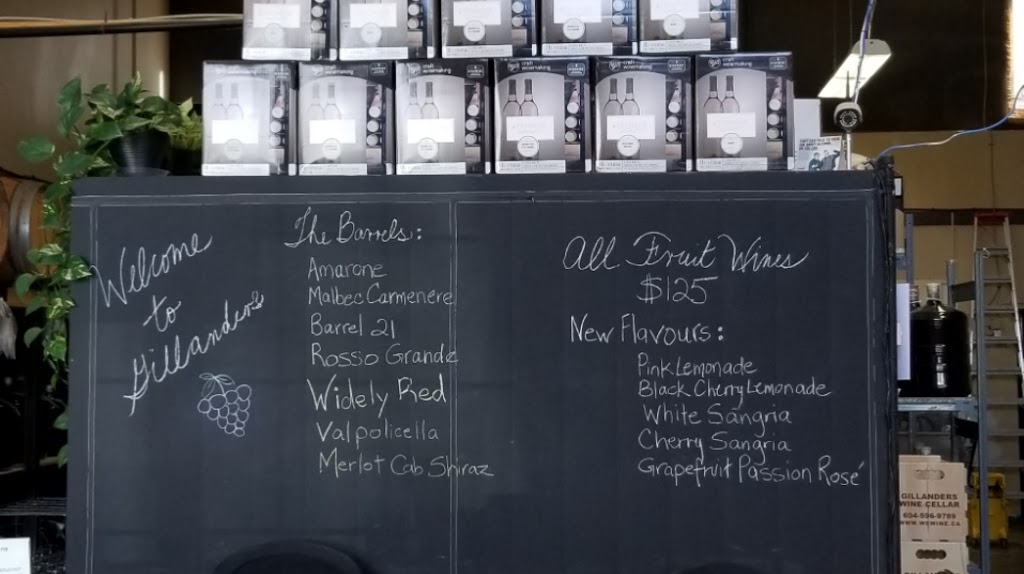 craft winemaking
craft winemaking
craft winemaking
craft winemaking
craft winemaking
Welcome
to
Gillanders
The Barrels:
Amarone
Malbec Carmenere
Barrel 21
Rosso Grande
Widely Red
Valpolicella
Merlot Cab Shiraz
All Fruit Wines
$125
New Flavours:
Pink Lemonade
Black Cherry Lemonade
White Sangria
Cherry Sangria
Grapefruit Passion Rosé
GILLANDERS
WINE CELLAR
604-596-9789
WWW.WEWINE.CA